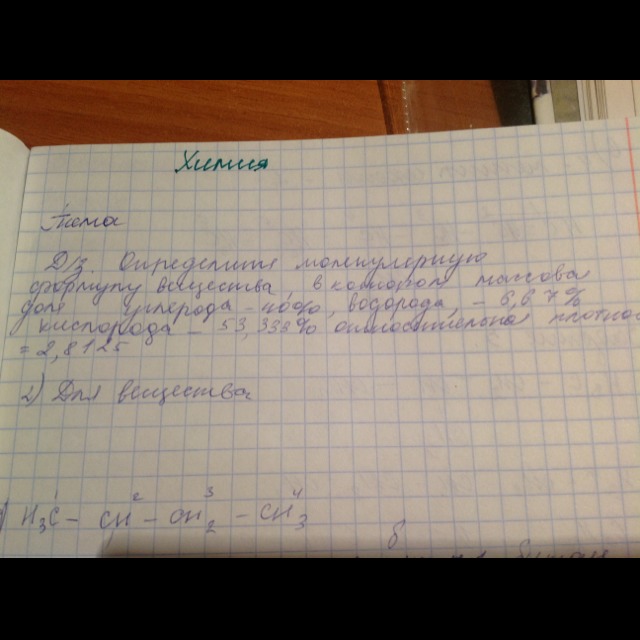 Химия
Тема
Д/з. Определите молекулярную
формулу вещества, в котором массовая
доля углерода - 40%, водорода, - 6,67%
кислорода - 53,333% относительная плотнос
= 2,8125
2) Для вещества
1 2 3 4
) H3C - CH - CH2 - CH3
б
бутан